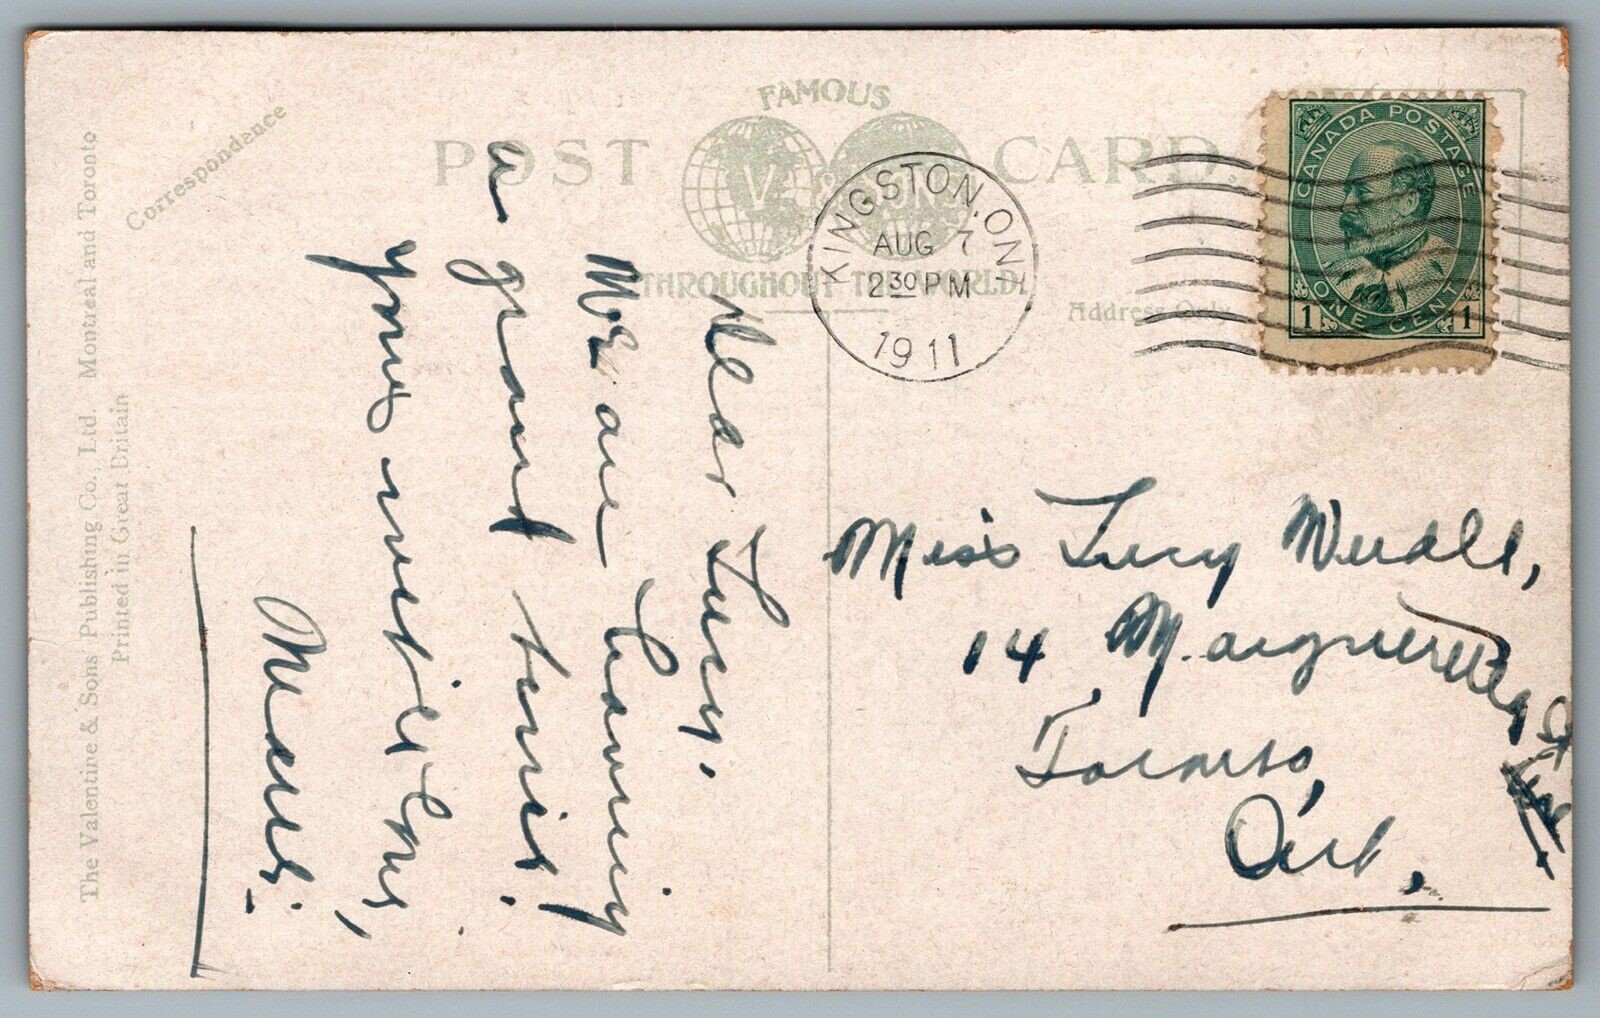 FAMOUS
POST CARD.
V. & SONS
THROUGHOUT THE WORLD.
Correspondence
Address Only
The Valentine & Sons' Publishing Co., Ltd. Montreal and Toronto
Printed in Great Britain
KINGSTON, ONT
AUG 7
2 30 PM
1911
CANADA POSTAGE
1 ONE CENT 1
Dear Lucy.
We are having
a grand time.
yours with love,
Miss Lucy
14 Marguerette St
Toronto,
Ont.